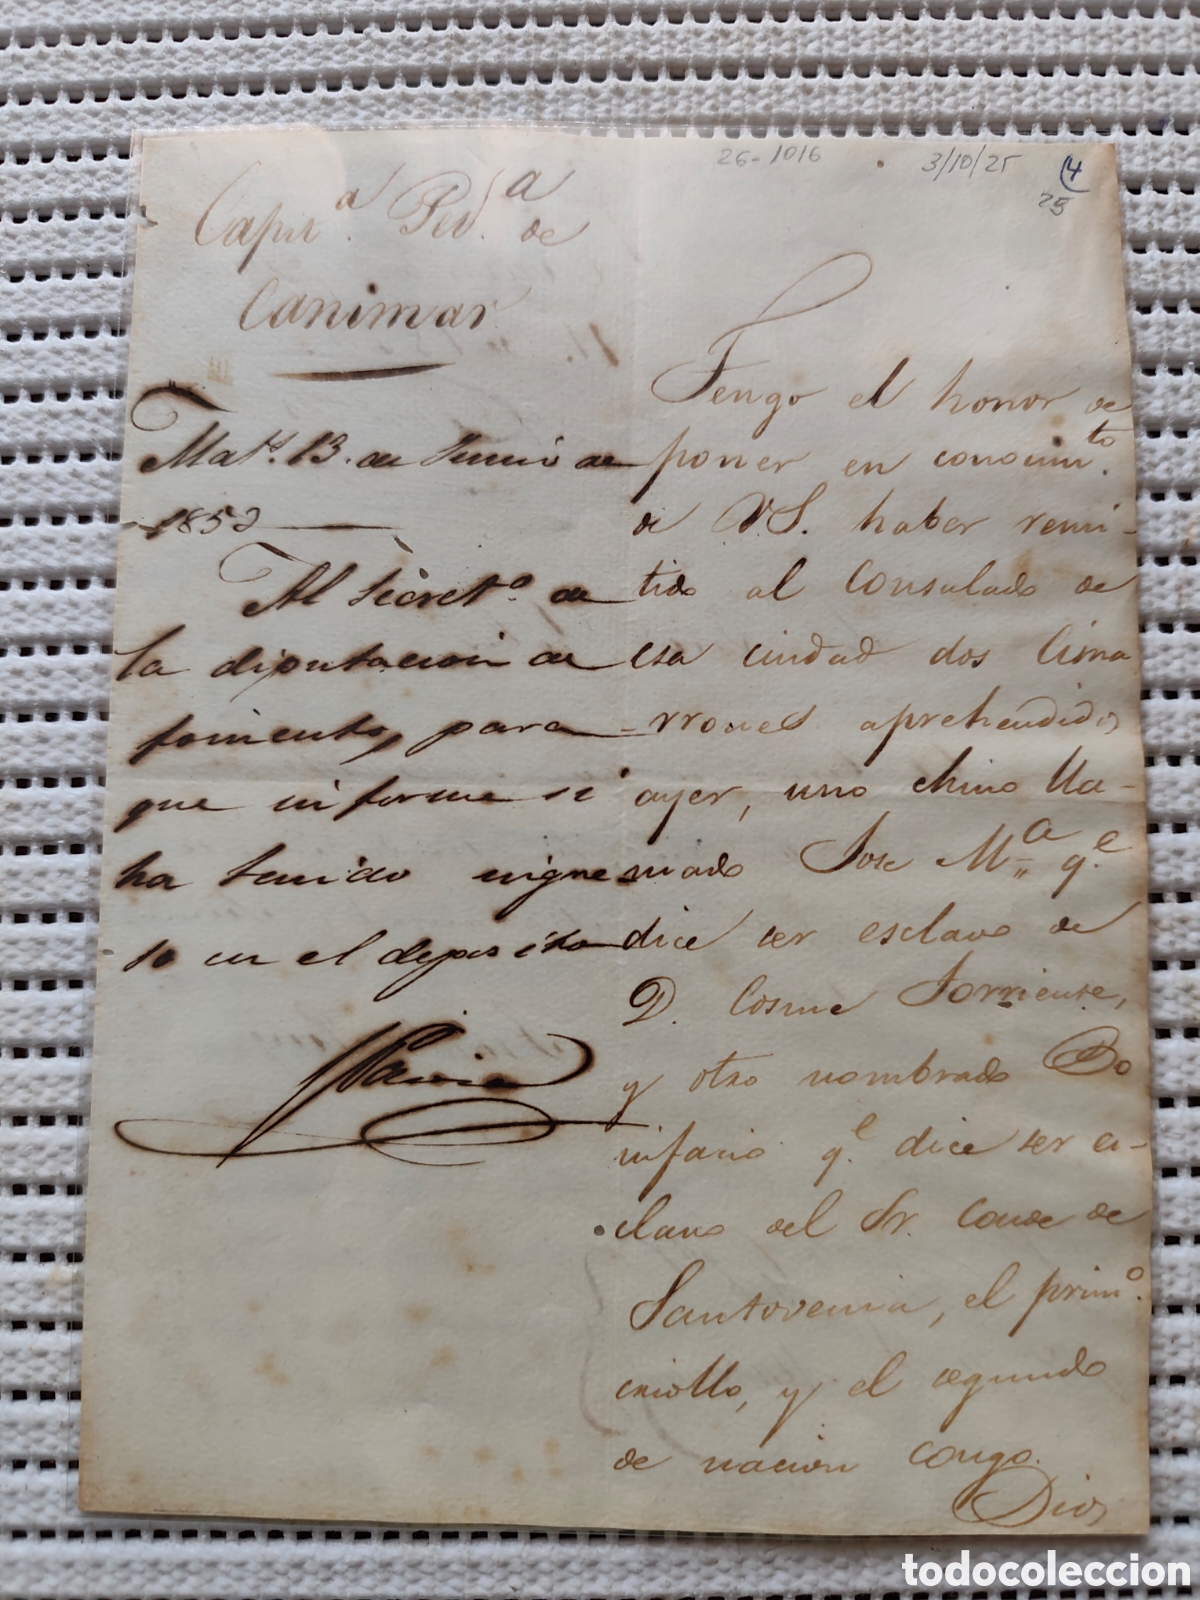 26-1016
3/10/25
14
25
Capit.ª Ped.ª de
Canimar
Mat.s 13 de Junio de
1852
Al Secret.º de
la diputacion de
fomento, para
que informe si
ha tenido ingre
so en el deposito
Tengo el honor de
poner en conocim.to
de V.S. haber remi-
tido al Consulado de
esa ciudad dos cima
-rrones aprehendidos
ayer, uno chino lla-
mado Jose M.ª q.e
dice ser esclavo de
D. Cosme Torriente,
y otro nombrado Bo
nifacio q.e dice ser es-
clavo del Sr. Conde de
Santovenia, el prim.º
criollo, y el segundo
de nacion congo.
Dios
todocoleccion